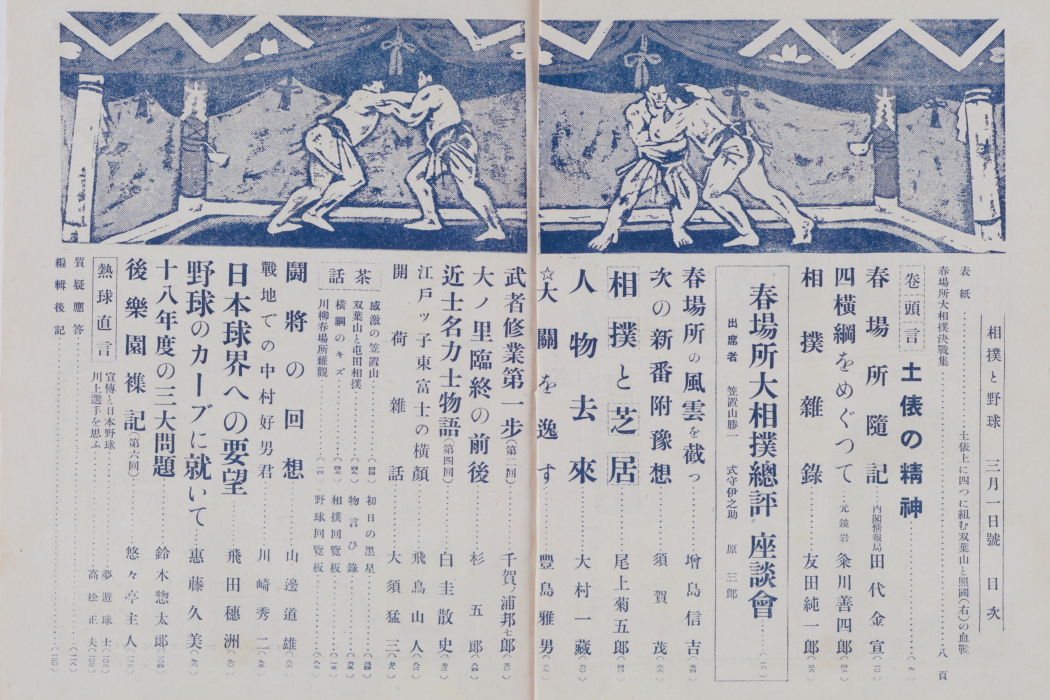 相撲と野球 三月一日號 目次
表紙……土俵上に四つに組む双葉山と照國(右)の血戰
春場所大相撲決戰集……八頁
卷頭言 土俵の精神
春場所隨記……内閣情報局 田代金宣
四橫綱をめぐつて……元鏡岩 粂川善四郎
相撲雜錄……友田純一郎
春場所大相撲總評 座談會
出席者 笠置山勝一 式守伊之助 原三郎
春場所の風雲を截つ……增島信吉
次の新番附豫想……須賀茂
相撲と芝居……尾上菊五郎
人物去來……大村一藏
☆大關を逸す……豐島雅男
武者修業第一步(第二回)……千賀ノ浦邦七郎
大ノ里臨終の前後……杉五郎
近士名力士物語(第四回)……白圭散史
江戸ッ子東富士の橫顏……飛鳥山人
開荷雜話……大須猛三
茶話
感激の笠置山
双葉山と屯田相撲
橫綱のキズ
川柳春場所雜觀
初日の黑星
物言ひ錄
相撲回覽板
野球回覽板
鬪將の回想……山邊道雄
戰地での中村好男君……川崎秀二
日本球界への要望……飛田穗洲
野球のカーブに就いて……惠藤久美
十八年度の三大問題……鈴木惣太郎
後樂園襍記(第六回)……悠々亭主人
熱球直言
宣傳と日本野球……夢遊球士
川上選手を思ふ……高松正夫
質疑應答
編輯後記